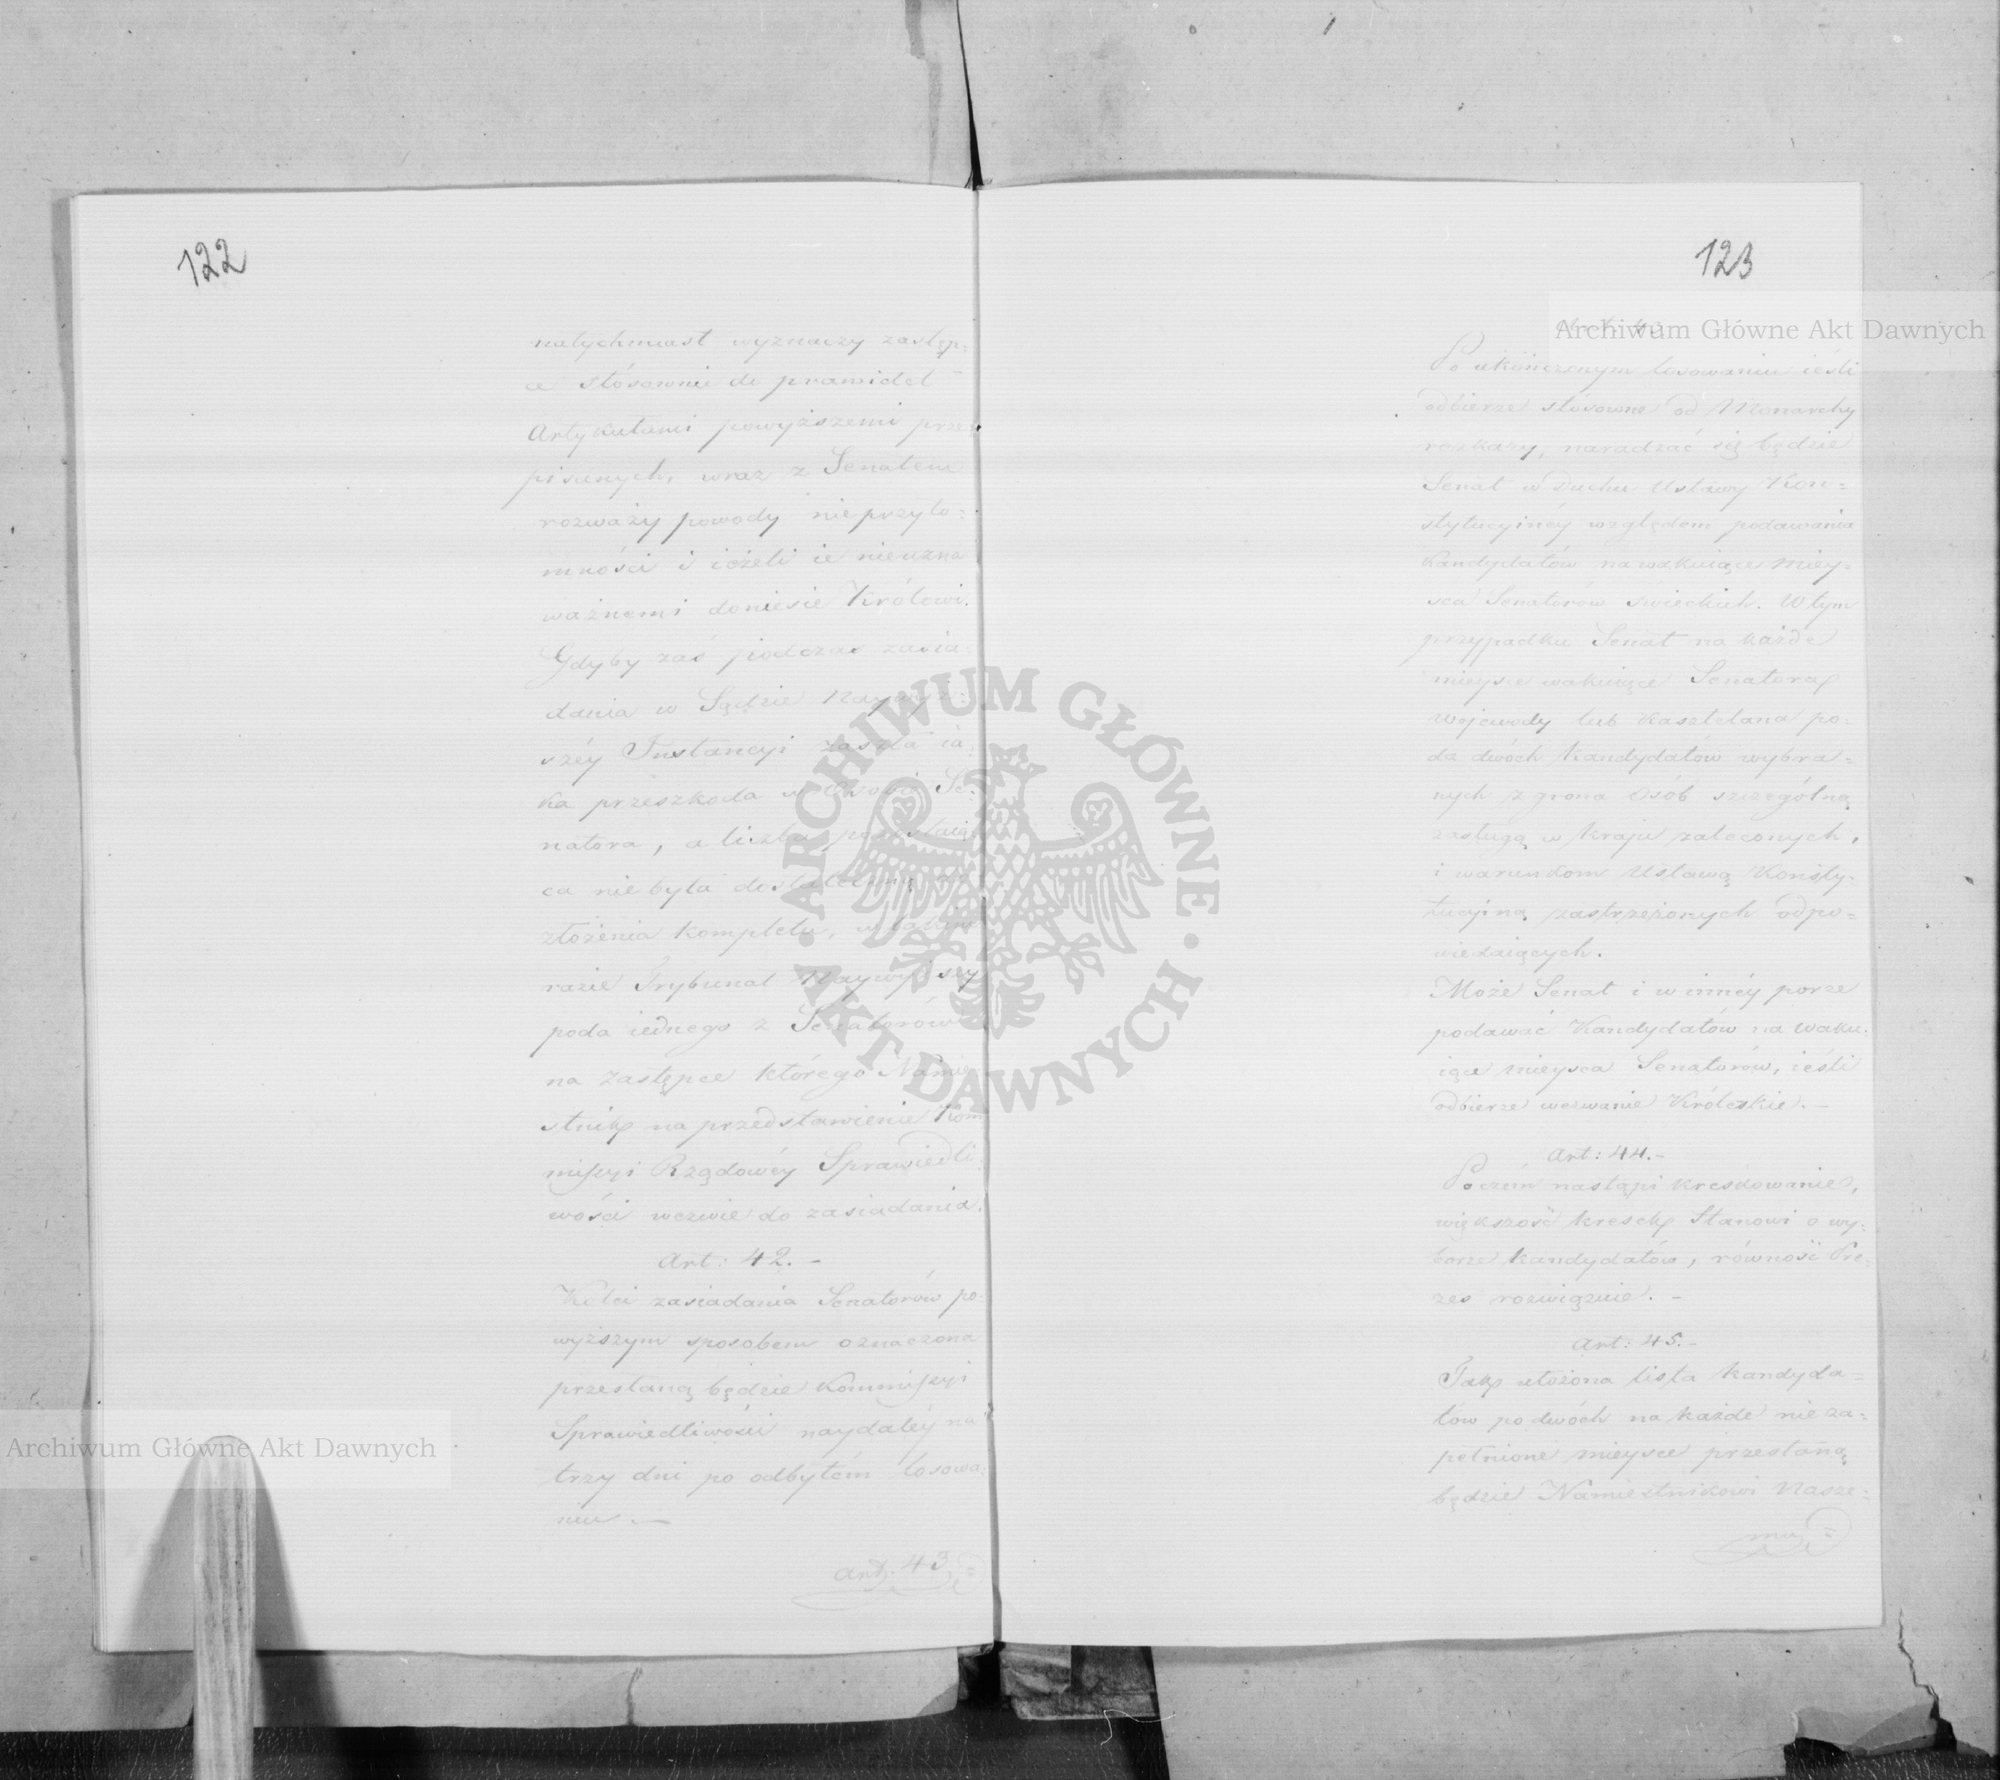 122
natychmiast wyznaczy zastęp=
cę stósownie do prawideł
Artykułami powyższemi prze=
pisanych, wraz z Senatem
rozważy powody nieprzyto=
mności i ieżeli ie nieuzna
ważnemi doniesie Królowi.
Gdyby zaś podczas zasia=
dania w Sądzie Naywyż=
széy Instancyi zaszła ia=
ka przeszkoda w Osobie Se=
natora, a liczba pozostaią=
ca niebyła dostateczną do
złożenia kompletu, w takim
razie Trybunał Naywyższy
poda iednego z Senatorów
na zastępcę którego Namie=
stnik na przedstawienie Kom
missyi Rządowéy Sprawiedli=
wości wezwie do zasiadania.
Art: 42. –
Koléi zasiadania Senatorów po=
wyższym sposobem oznaczona
przesłaną będzie Kommissyi
Sprawiedliwości naydaléy na
trzy dni po odbytém losowa=
niu. —
Art. 43. =
123
Archiwum Główne Akt Dawnych
Po ukończonym losowaniu ieśli
odbierze stósowne od Monarchy
rozkazy, naradzać się będzie
Senat w Duchu Ustawy Kon=
stytucyinéy względem podawania
Kandydatów na wakuiące miey=
sca Senatorów swieckich. W tym
przypadku Senat na każde
mieysce wakuiące Senatora
Wojewody lub Kasztelana po=
da dwóch Kandydatów wybra=
nych z grona Osób szczególną
zasługą w kraju zaleconych,
i warunkom Ustawą Konsty=
tucyiną zastrzeżonych odpo=
wiedaiących.
Może Senat i w innéy porze
podawać Kandydatów na waku=
iące mieysca Senatorów, ieśli
odbierze wezwanie Królewskie. –
Art: 44. –
Poczém nastąpi kreskowanie,
większość kresek stanowi o wy=
borze kandydatów, równość Pre=
zes rozwiązuie. –
Art: 45. –
Tak ułożona lista kandyda=
tów po dwóch na każde nieza=
pełnione mieysce przesłaną
będzie Namiestnikowi Nasze=
mu =
ARCHIWUM GŁÓWNE AKT DAWNYCH
Archiwum Główne Akt Dawnych